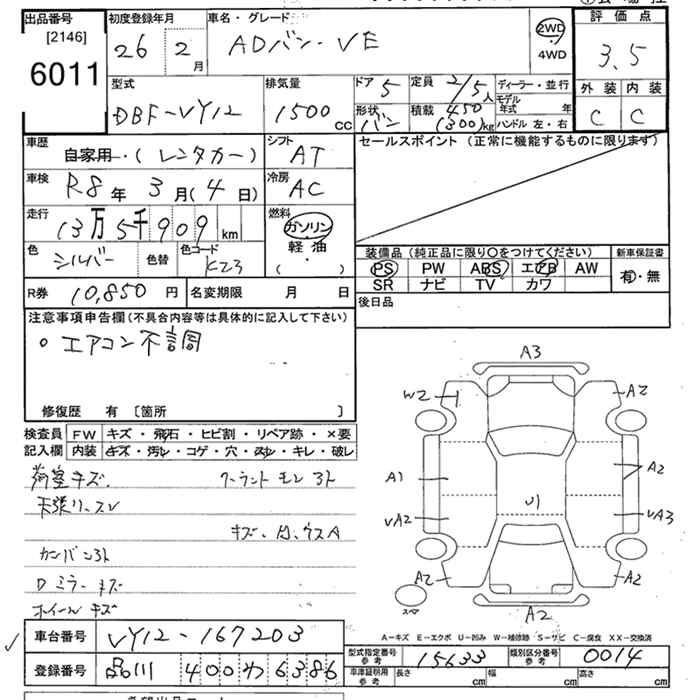 出品番号 [2146] 6011
初度登録年月 26 2月
車名・グレード ADバン・VE
2WD 4WD
評価点 3.5
外装 内装
C C
型式 DBF-VY12
排気量 1500cc
ドア 5 定員 2/5人
形状 バン 積載 450 (300)kg
ディーラー・並行
モデル年式 年
ハンドル 左・右
車歴 自家用・(レンタカー)
シフト AT
セールスポイント(正常に機能するものに限ります)
車検 R8年 3月(4日)
冷房 AC
走行 13万5千909km
燃料 ガソリン 軽油 ( ・ )
色 シルバー 色替 色コード K23
装備品(純正品に限り○をつけてください) 新車保証書
PS PW ABS エアB AW 有・無
SR ナビ TV カワ
R券 10,850円 名変期限 月 日
後日品
注意事項申告欄(不具合内容等は具体的に記入して下さい)
○エアコン不調
修復歴 有〔箇所 〕
検査員 FW キズ・飛石・ヒビ割・リペア跡・×要
記入欄 内装 キズ・汚レ・コゲ・穴・スレ・キレ・破レ
荷室キズ
カンバン
Dミラーキズ
ホイールキズ
A3
W2 A2
A1 A2
U1
UA2 UA3
A2 A2
スペア
A2
A-キズ E-エクボ U-凹み W-補修跡 S-サビ C-腐食 XX-交換済
車台番号 VY12-167203
型式指定番号 参考 15633 類別区分番号 参考 0014
登録番号 品川 400 わ 6386
車庫証明用 参考 長さ cm 幅 cm 高さ cm